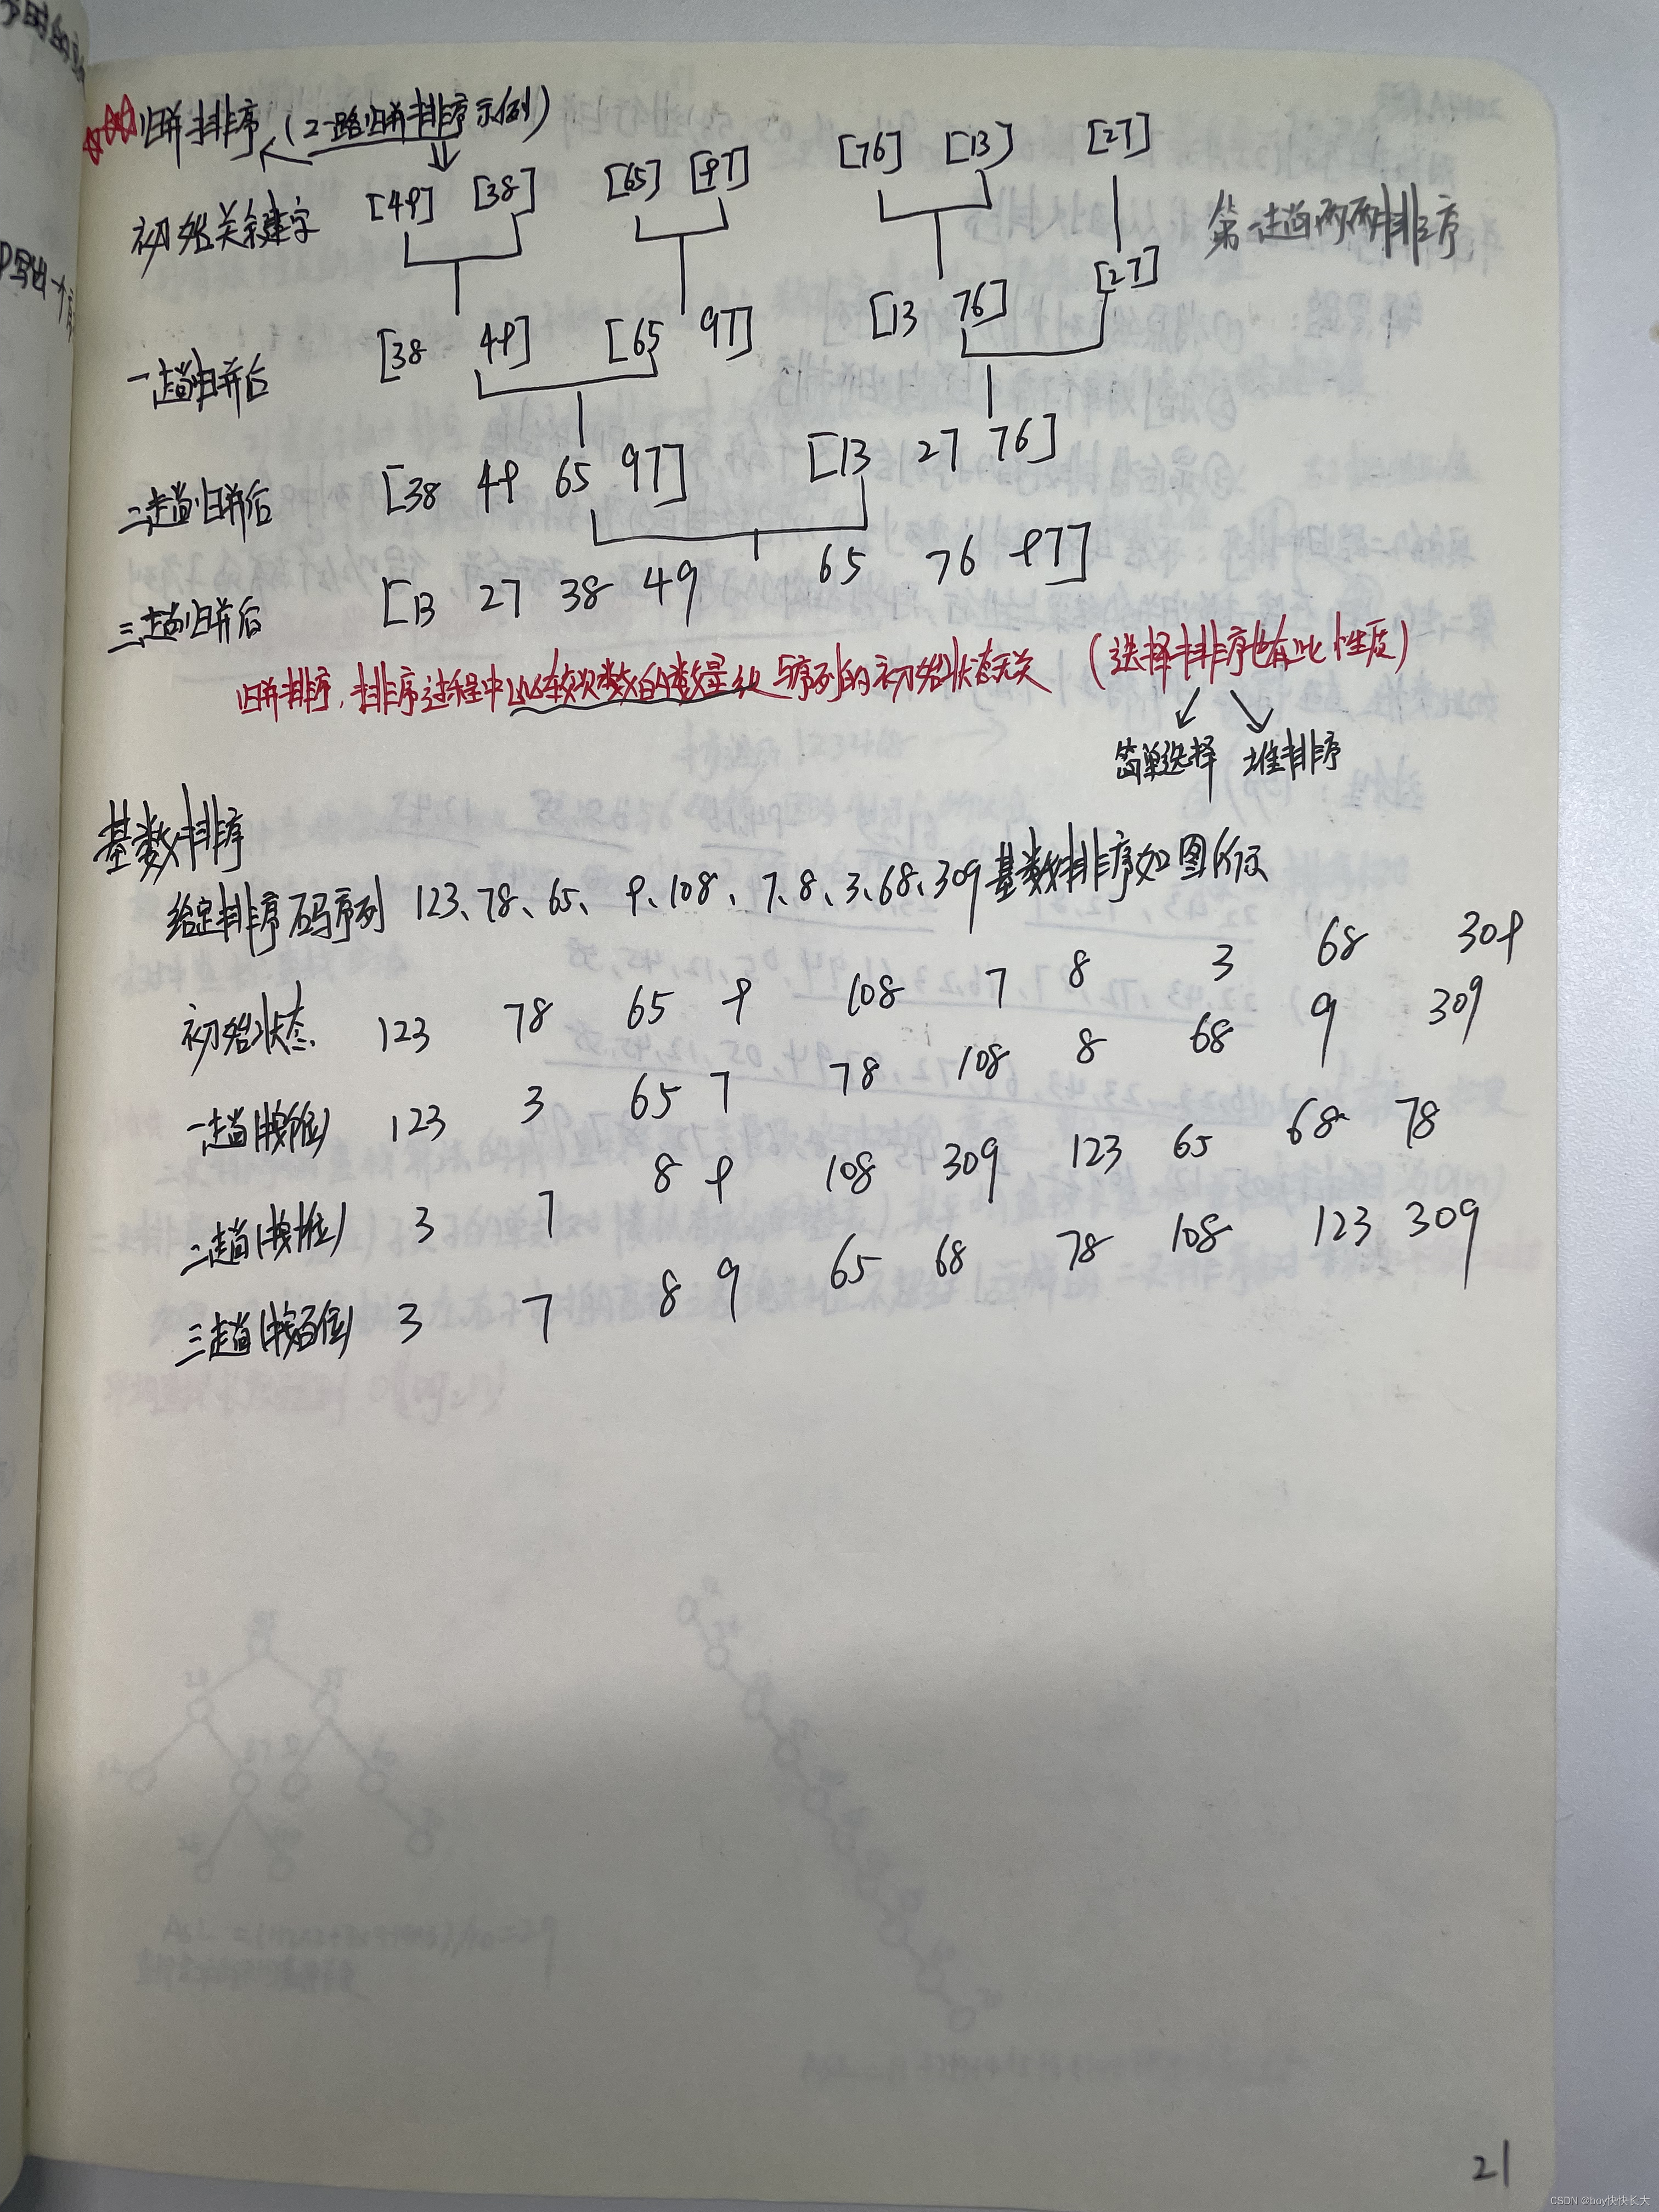 归并排序 (2-路归并排序示例)
初始关键字 [49] [38] [65] [97] [76] [13] [27] 第一趟两两排序
一趟归并后 [38 49] [65 97] [13 76] [27]
二趟归并后 [38 49 65 97] [13 27 76]
三趟归并后 [13 27 38 49 65 76 97]
归并排序,排序过程中比较次数的数量级与序列的初始状态无关 (选择排序也有此性质)
简单选择 堆排序
基数排序
给定排序码序列 123、78、65、9、108、7、8、3、68、309基数排序如图所示
初始状态 123 78 65 9 108 7 8 3 68 309
一趟(按个位) 123 3 65 7 78 108 8 68 9 309
二趟(按十位) 3 7 8 9 108 309 123 65 68 78
三趟(按百位) 3 7 8 9 65 68 78 108 123 309
21
CSDN @boy快快长大